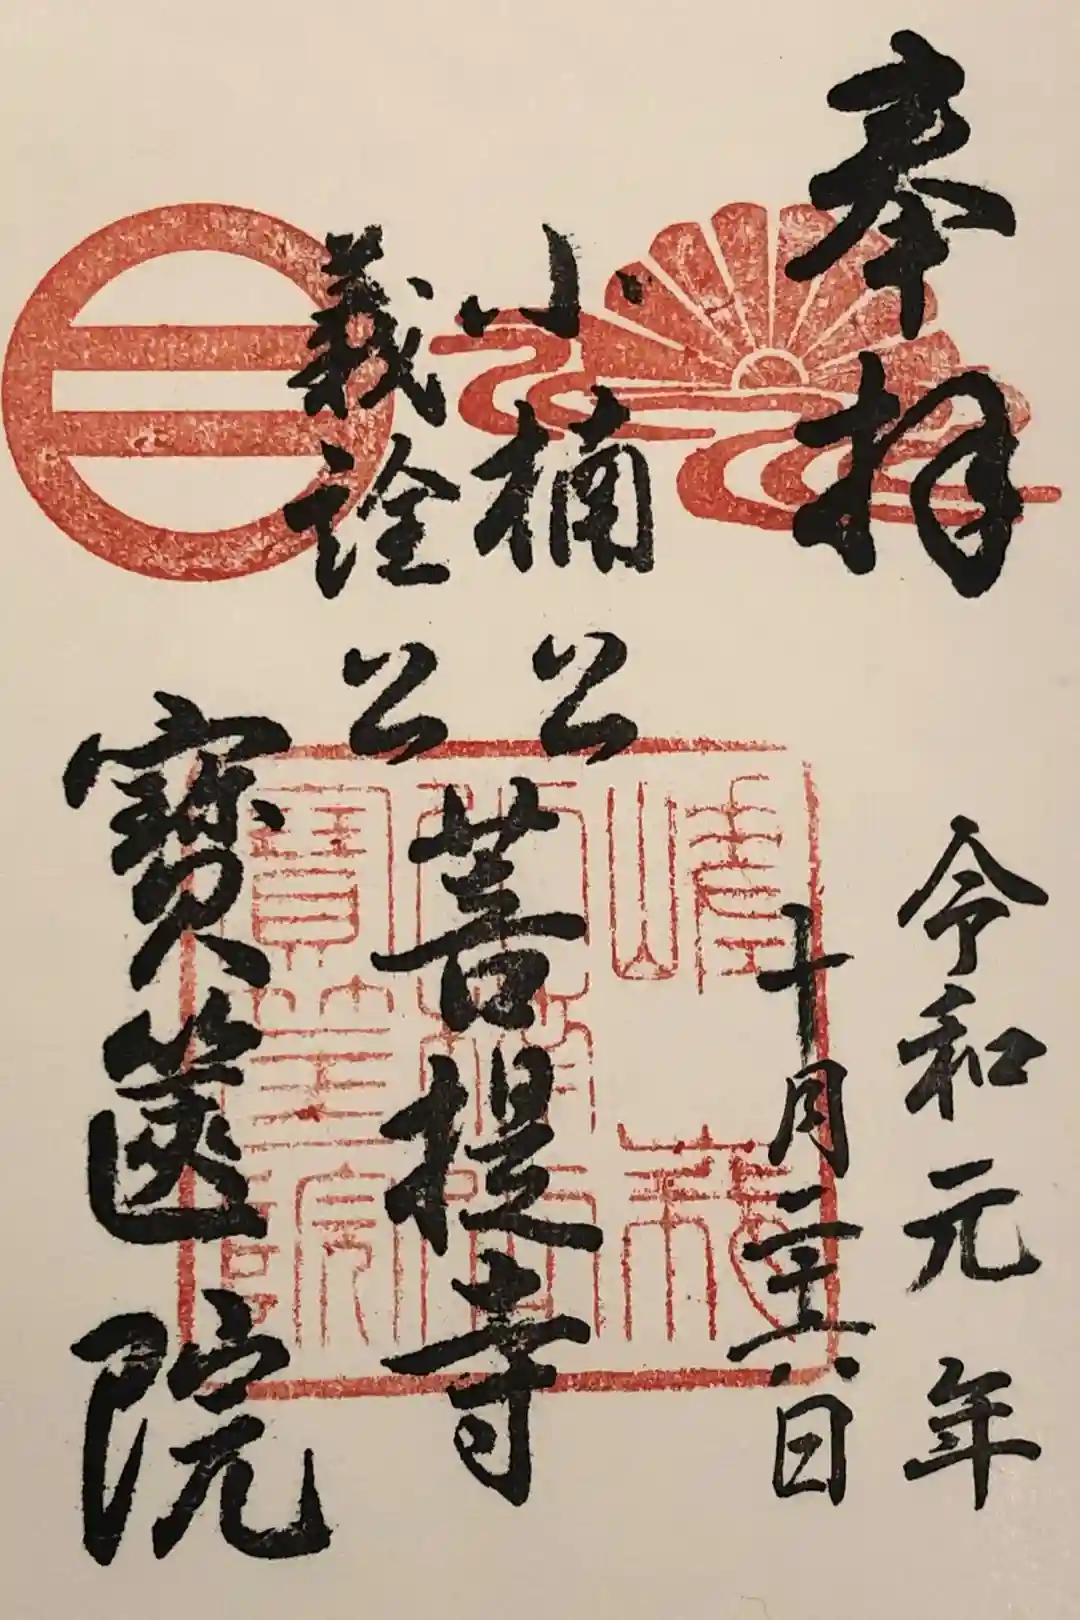 奉拝
令和元年
十月二十六日
小楠公
義詮公
菩提寺
寳篋院